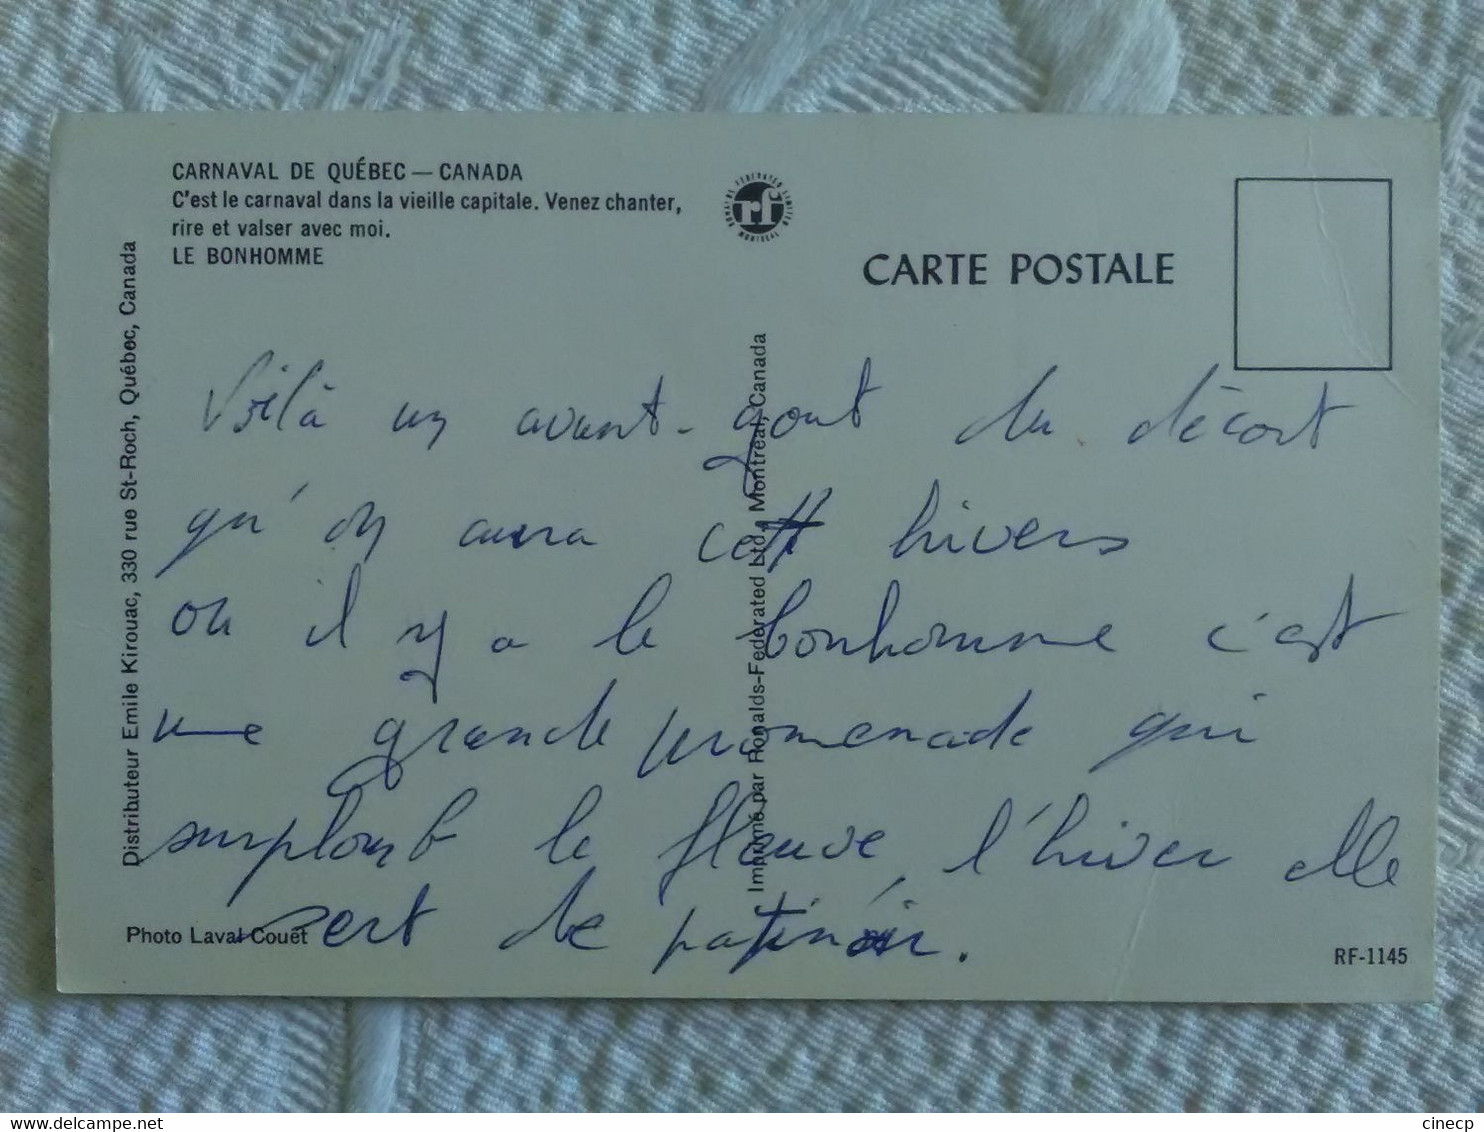 CARNAVAL DE QUÉBEC — CANADA
C'est le carnaval dans la vieille capitale. Venez chanter,
rire et valser avec moi.
LE BONHOMME
RONALDS-FEDERATED LIMITED
rf
MONTREAL
CARTE POSTALE
Distributeur Emile Kirouac, 330 rue St-Roch, Québec, Canada
Imprimé par Ronalds-Federated Ltd., Montreal, Canada
Voilà un avant-gout du décort
qu'on aura cett hivers
ou il y a le bonhomme c'est
une grande promenade qui
surplomb le fleuve, l'hiver elle
sert de patinoir.
Photo Laval Couët
RF-1145
www.delcampe.net
cinecp